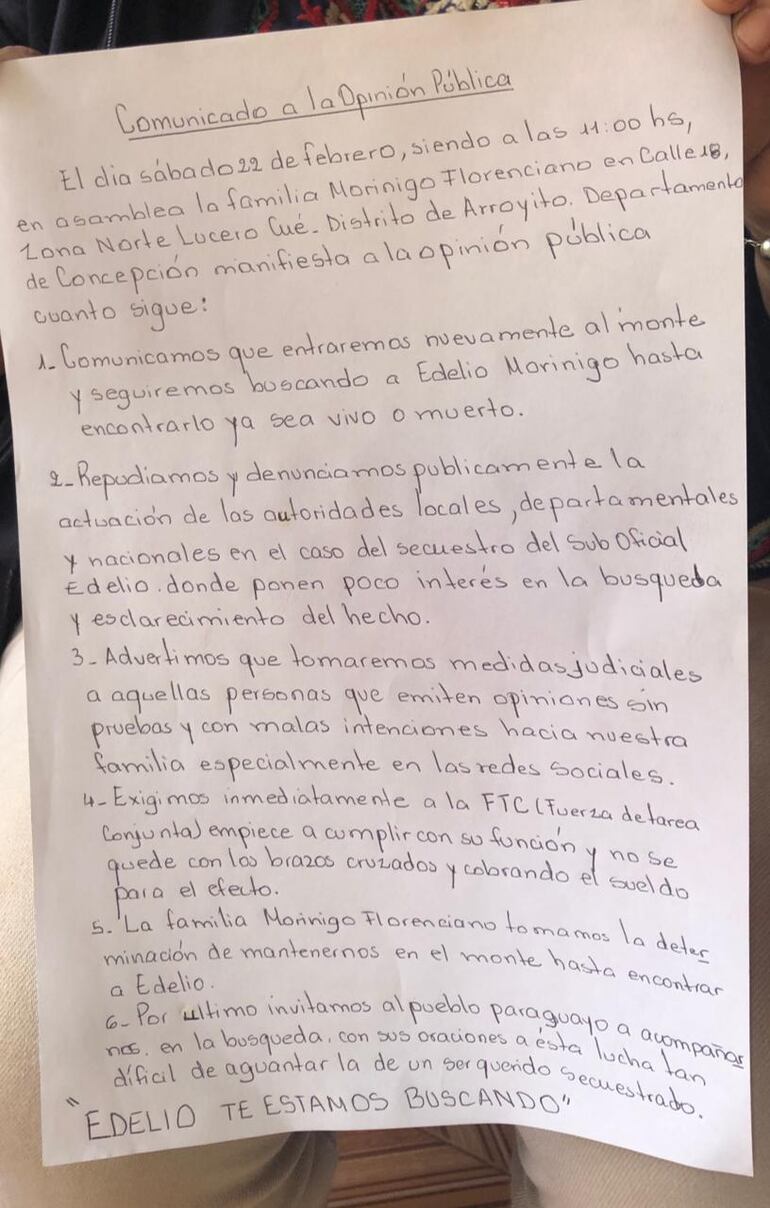 Comunicado a la Opinión Pública
El dia sábado 22 de febrero, siendo a las 11:00 hs,
en asamblea la familia Morinigo Florenciano en Calle 18,
Zona Norte Lucero Cué - Distrito de Arroyito. Departamento
de Concepción manifiesta a la opinión pública
cuanto sigue:
1- Comunicamos que entraremos nuevamente al monte
y seguiremos buscando a Edelio Morinigo hasta
encontrarlo ya sea vivo o muerto.
2- Repudiamos y denunciamos publicamente la
actuación de las autoridades locales, departamentales
y nacionales en el caso del secuestro del Sub Oficial
Edelio. donde ponen poco interés en la busqueda
y esclarecimiento del hecho.
3- Advertimos que tomaremos medidas judiciales
a aquellas personas que emiten opiniones sin
pruebas y con malas intenciones hacia nuestra
familia especialmente en las redes sociales.
4- Exigimos inmediatamente a la FTC (Fuerza de tarea
Conjunta) empiece a cumplir con su función y no se
quede con los brazos cruzados y cobrando el sueldo
para el efecto.
5. La familia Morinigo Florenciano tomamos la deter
minación de mantenernos en el monte hasta encontrar
a Edelio.
6- Por ultimo invitamos al pueblo paraguayo a acompañar
nos. en la busqueda, con sus oraciones a ésta lucha tan
díficil de aguantar la de un ser querido secuestrado.
"EDELIO TE ESTAMOS BUSCANDO"